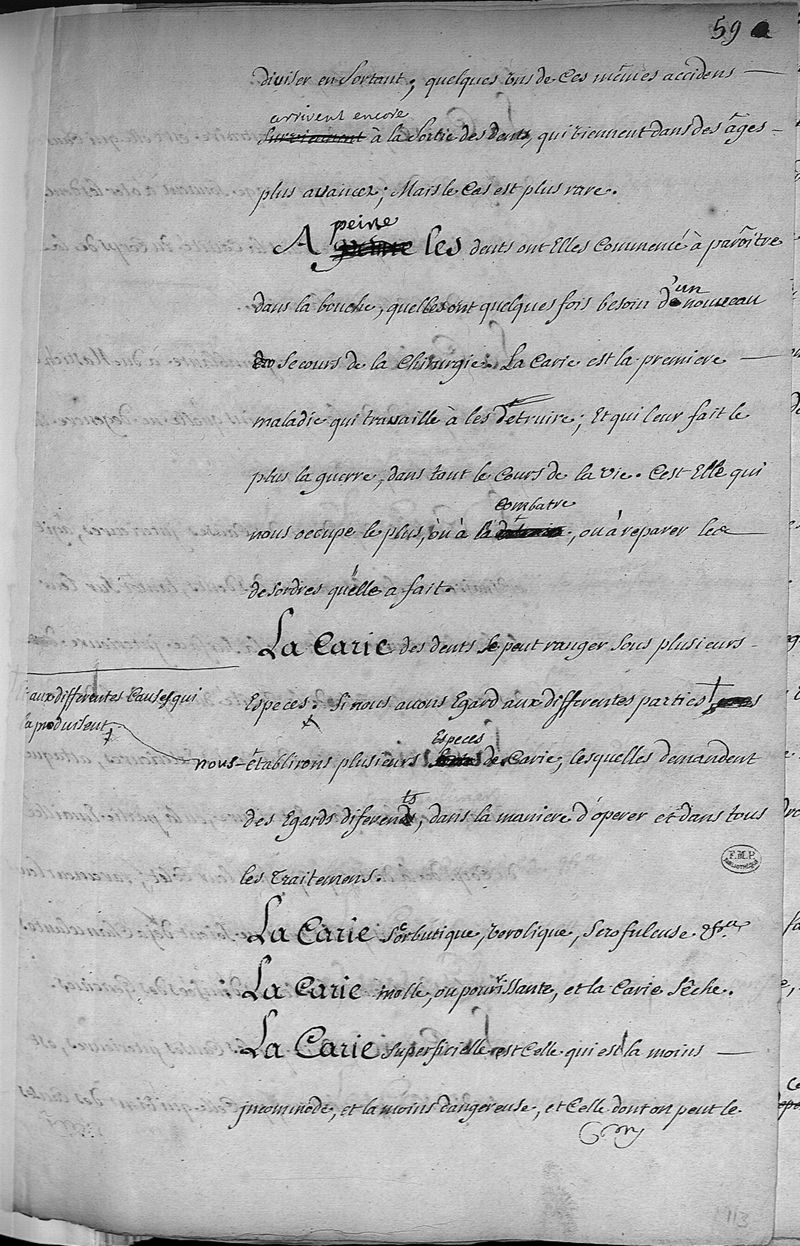 59
diviser en Sortant; quelques uns de Ces mêmes accidens
arrivent encore
à la Sortie des dents, qui viennent dans des âges
plus avancez; Mais le Cas est plus rare.
peine
A les dents ont Elles Commencé à parôitre
dans la bouche, quelles ont quelques fois besoin d'un nouveau
Secours de la Chirurgie. La Carie est la premiere
maladie qui travaille à les détruire; Et qui leur fait le
plus la guerre, dans tout le Cours de la vie. C'est Elle qui
Combatre
nous occupe le plus, ou à la, ou à réparer les
desordres qu'elle a fait.
La Carie des dents se peut ranger Sous plusieurs
aux differentes Causes qui
Especes. Si nous avons Egard aux differentes parties
la produisent
Especes
nous établirons plusieurs de Carie, lesquelles demandent
des Egards diferents, dans la maniere d'óperer et dans tous
les Traitemens.
F.M.P.
BIBLIOTHEQUE
La Carie Scorbutique, verolique, Scrofuleuse &c.
La Carie molle, ou pourrissante, et la Carie Sêche.
La Carie Superficielle est Celle qui est la moins
jncommode, et la moins dangereuse, et Celle dont on peut le
113